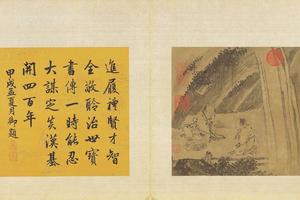 進履禮賢才智
全敬聆治世寶
書傳一時能忍
大謀定炎漢基
開四百年
甲戌孟夏月御題